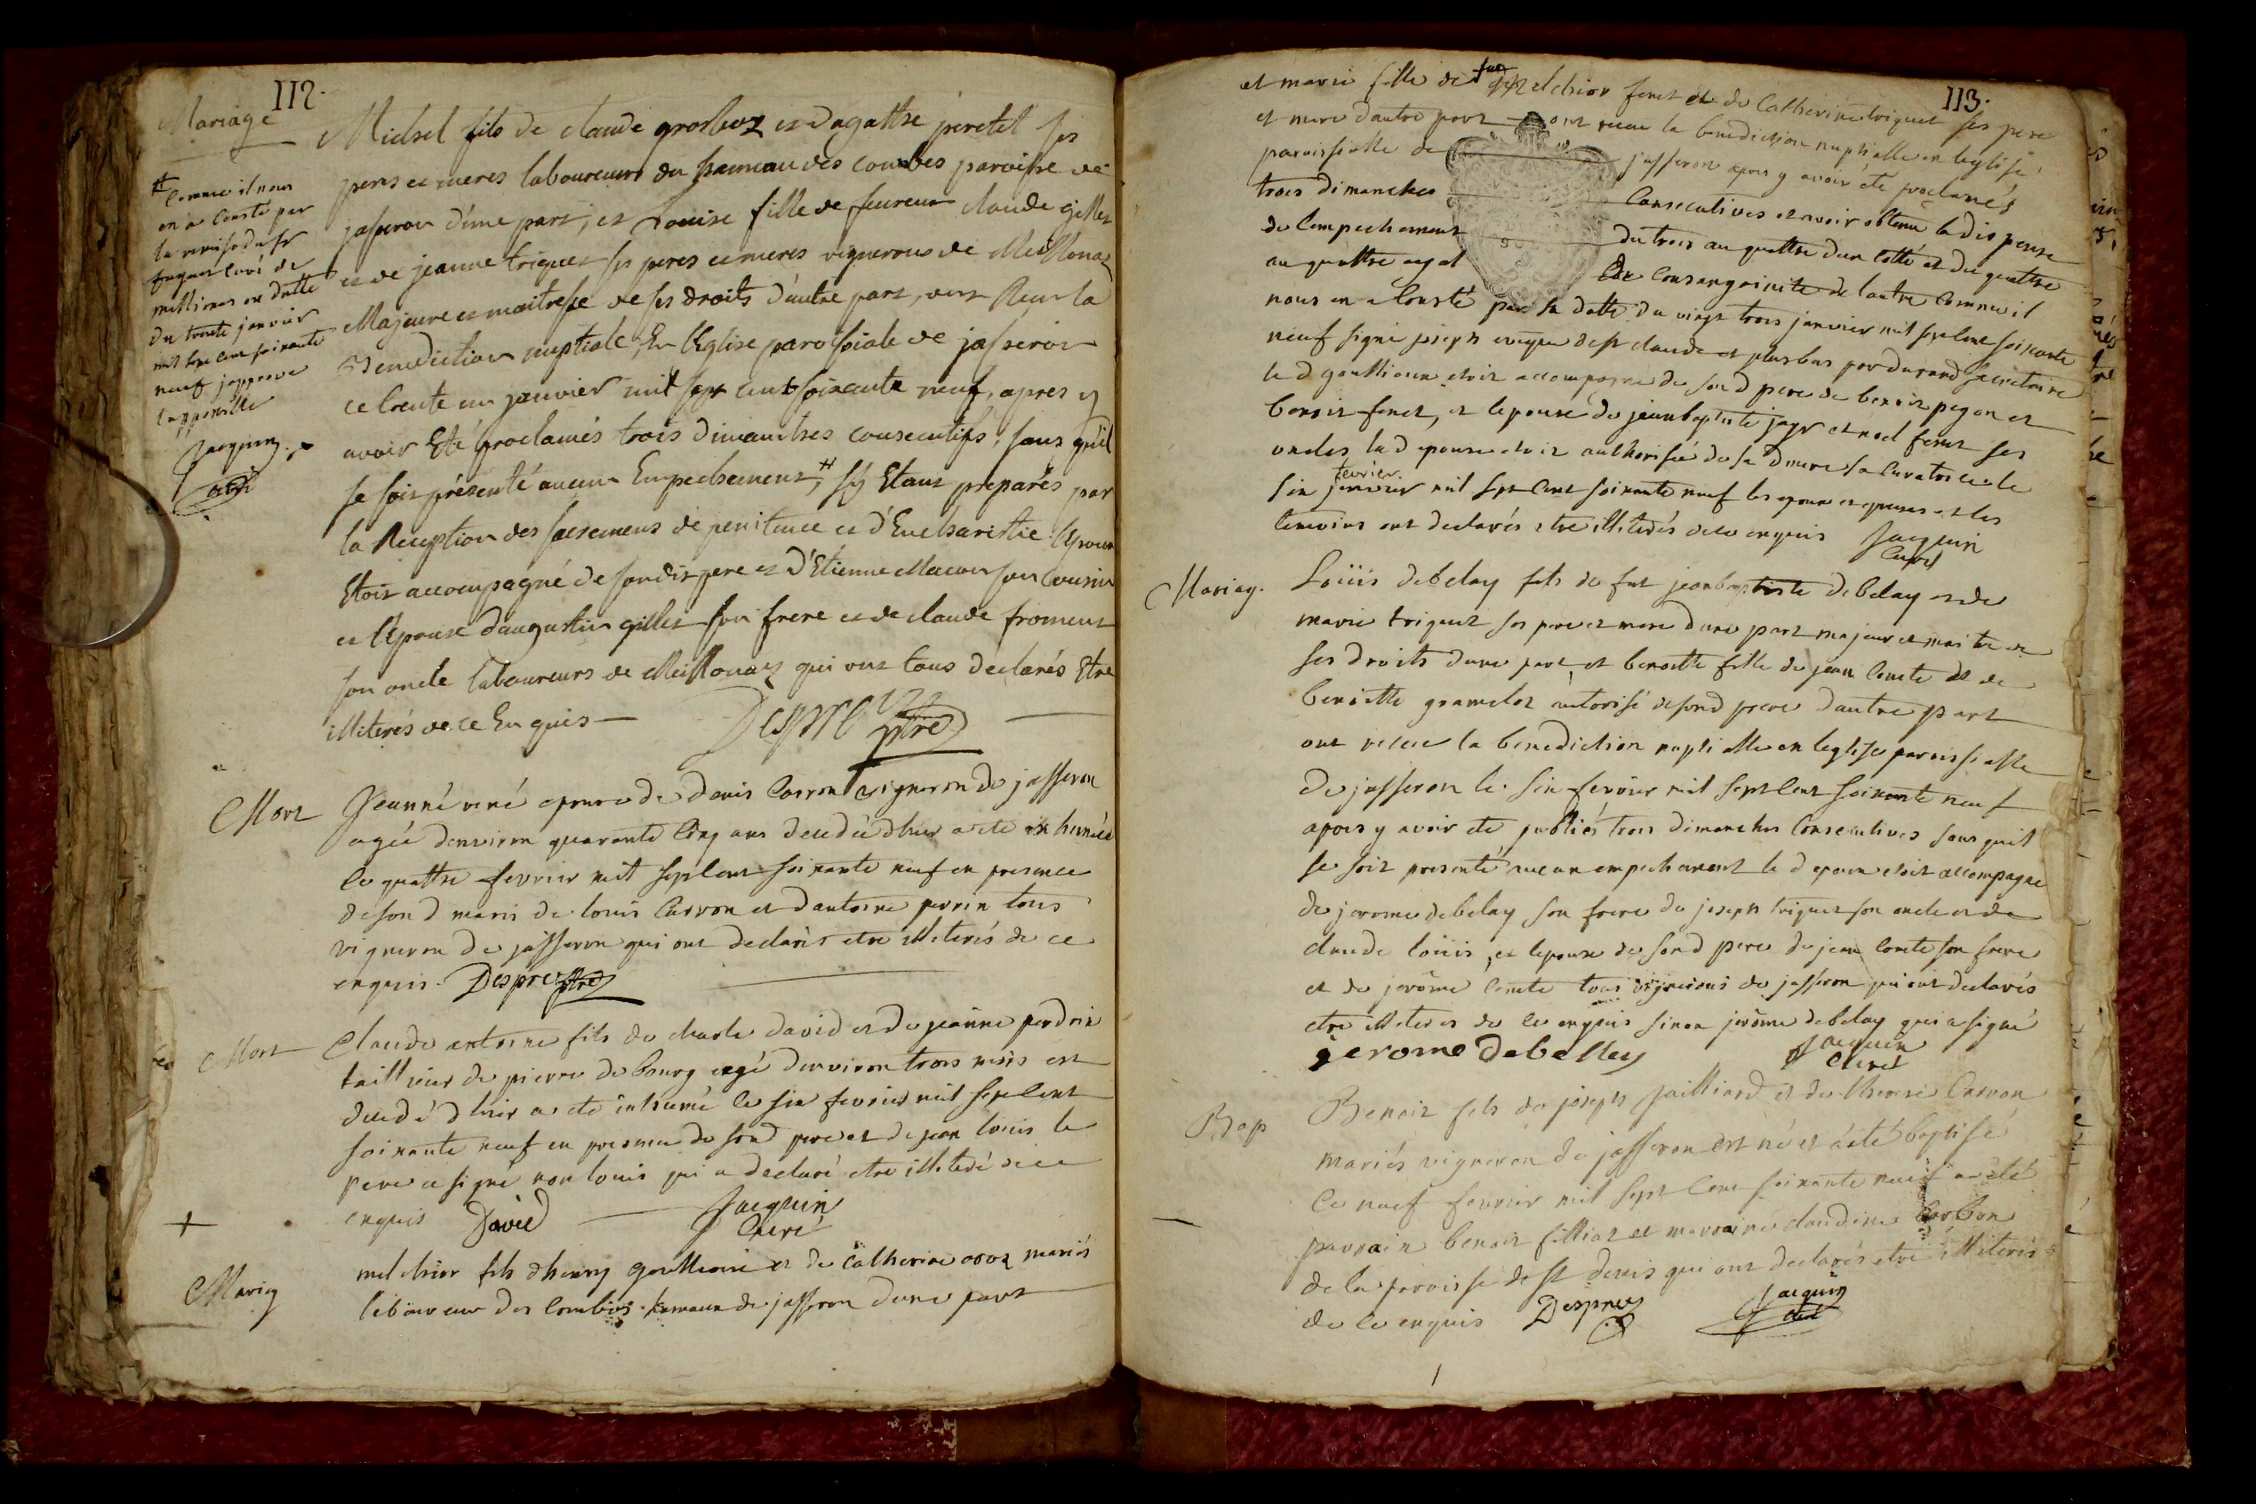 112.
Mariage
Michel fils de claude grosboz et d'agathe peretet ses
peres et meres laboureurs du hameau des combes paroisse de
jasseron d'une part, et Louise fille de feu claude gilles
et de jeanne triquet ses peres et meres vignerons de Meillonaz
Majeure et maitresse de ses droits d'autre part, ont Reçu la
Benediction nuptiale, En l'Eglise paroissiale de jasseron
ce trente un janvier mil sept cent soixante neuf, apres y
avoir Eté proclamés trois dimanches consecutifs, sans qu'il
se soit présenté aucun Empechement, # s'y Etant preparés par
la Reception des sacremens de penitence et d'Eucharistie l'Epoux
Etoit accompagné de son dit pere et d'Etienne Macon son Cousin
et l'Epouse d'augustin gilles son frere et de claude froment
son oncle laboureurs de Meillonaz qui ont tous déclarés Etre
illiterés de ce Enquis
Desprez ptre
# Comme il nous
en a Consté par
la remise du sr
curé de
meillonas en datte
du trente janvier
mil sept cent soixante
neuf japprouve
lappostille
Jacquin
curé
Mort
Jeanne rené epouse de denis Carron vigneron de jasseron
agée denviron quarante Cinq ans decedée dhier a ete inhumée
le quattre fevrier mil sept cent soixante neuf en presence
de son d maris de louis Carron et dantoine perrin tous
vigneron de jasseron qui ont declarés etre illiterés de ce
enquis. Desprez ptre
Mort
Claude antoine fils de charle david et de jeanne perdrix
tailleur de pierre de bourg agé denviron trois mois est
decedé dhier a ete inhumé le six fevrier mil sept cent
soixante neuf en presence de son d pere et de jean louis le
pere a signé non louis qui a declaré etre illiteré de ce
enquis David Jacquin
Curé
+
Mariag
melchior fils dhenry goullioux et de Catherine mariés
laboureur des Combes hameau de jasseron dune part
113.
et marie fille de feu melchior feret et de Catherine triquet ses pere
et mere dautre part ont recue la benediction nuptialle en leglise
paroissialle de jasseron apres y avoir été proclamés
trois dimanches Consecutives et avoir obtenu la dispense
de lempechement du trois au quattre dun Cotté et du quattre
au quattre egal de Consanguinité de lautre Comme il
nous en a Consté par sa datte du vingt trois janvier mil sept cent soixante
neuf signé joseph eveque de st claude et plus bas par durand secretaire
le d goullioux etoit accompagné de son d pere de benoit pegon et
benoit feret, et lepouse de jeanbaptiste jayr et noel feret ses
oncles la d epouse etoit authorisée de sa d mere sa Curatrice le
six fevrier mil sept Cent soixante neuf les epoux et epouses et les
temoins ont declarés etre illiterés de ce enquis Jacquin
Curé
Mariag.
Loüis debelay fils de fut jeanbaptiste debelay et de
marie triquet ses pere et mere dune part majeur et maitre de
ses droits dune part, et benoitte fille de jean Comte et de
benoitte gramelot autorisé de son d pere dautre part
ont recue la benediction nuptialle en leglise paroissialle
de jasseron le six fevrier mil sept Cent soixante neuf
apres y avoir ete publiés trois dimanches Consecutives sans quil
se soit presenté aucun empechement le d epoux etoit accompagné
de jerome debelay son frere de joseph triquet son oncle et de
claude loüis, et lepouse de son d pere de jean Comte son frere
et de jerôme Comte tous vignerons de jasseron qui ont declarés
etre illiterés de ce enquis sinon jerôme debelay qui a signé
jerome debelley Jacquin
Curé
Bap
Benoit fils de joseph jailliard et de therese Carron
mariés vigneron de jasseron est né et a été baptisé
le neuf fevrier mil sept Cent soixante neuf a eté
parrain benoit filliat et marraine claudine
de la paroisse de st denis qui ont declarés etre illiterés
de ce enquis Desprez Jacquin
curé